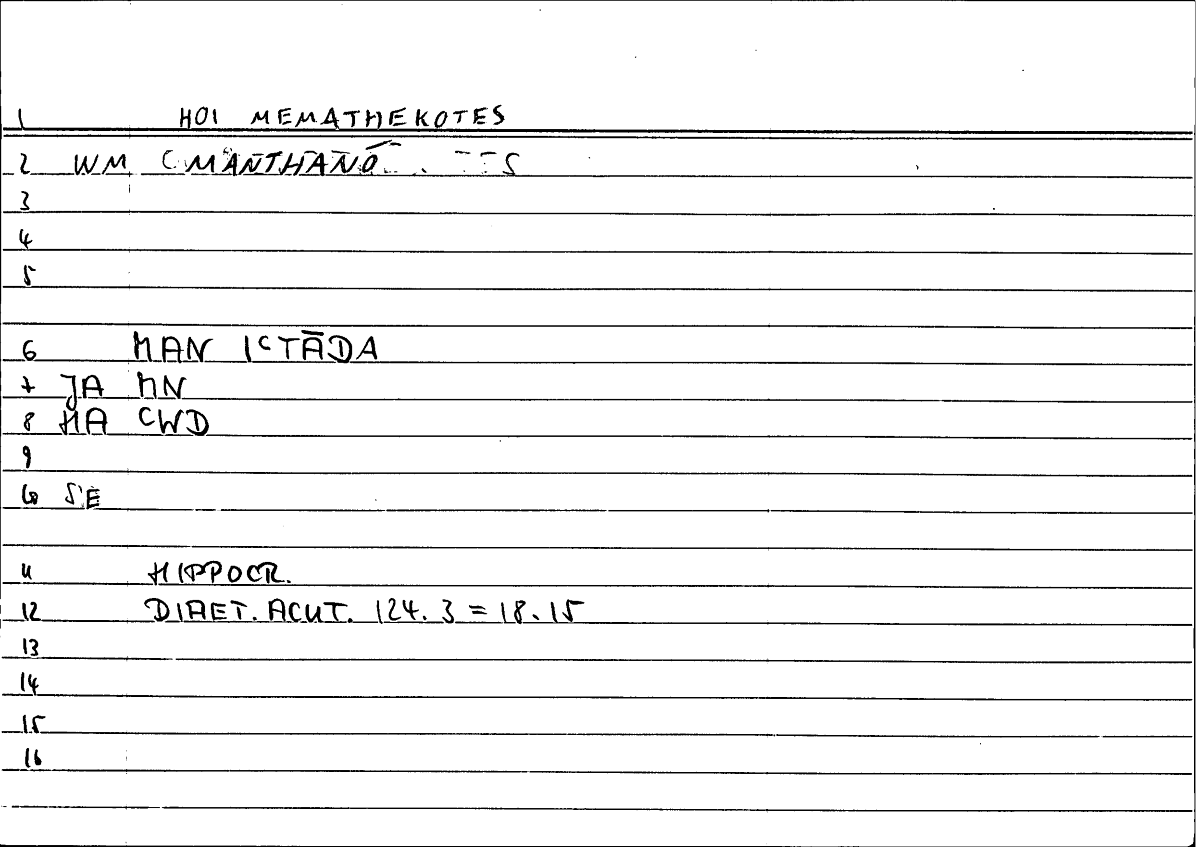 1 HOI MEMATHEKOTES
2 WM MANTHANŌ
3
4
5
6 MAN ICTĀDA
7 JA MN
8 HA CWD
9
10 SE
11 HIPPOCR.
12 DIAET. ACUT. 124.3 = 18.15
13
14
15
16